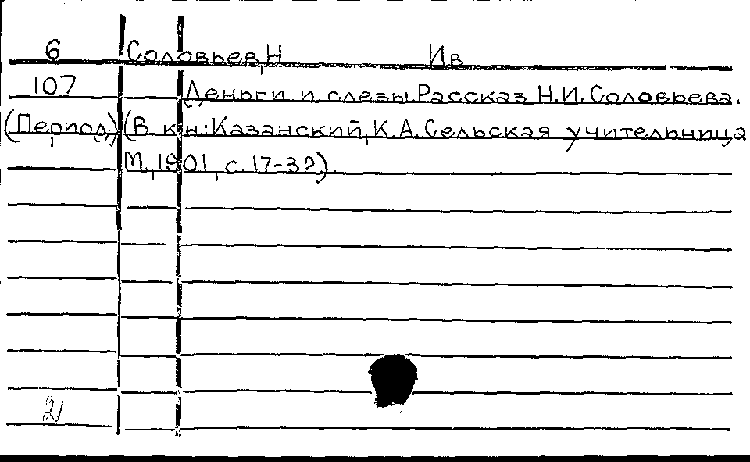 6 Соловьев, Н Ив
107 Деньги и слезы. Рассказ Н.И. Соловьева.
(Период) (В кн: Казанский, К.А. Сельская учительница
М, 1901, с. 17-32).
2